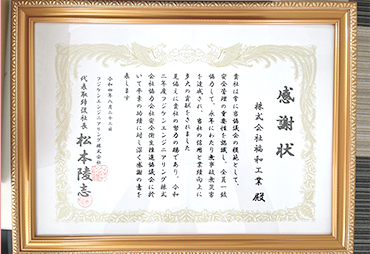 感謝状
株式会社福和工業 殿
貴社は常に当協議会の模範として、
安全管理の重要性を認識し、全員一致
協力して、永年にわたり無事故無災害
を達成され、当社の信用と業績向上に
多大の貢献をされました
見偏えに貴社の努力の賜であり、令和
二年度フジケンエンジニアリング株式
会社協力会社安全衛生推進協議会に於
いて平素の功績に対し深く感謝の意を
表します
令和四年八月二十三日
フジケンエンジニアリング株式会社
代表取締役社長 松本陵志